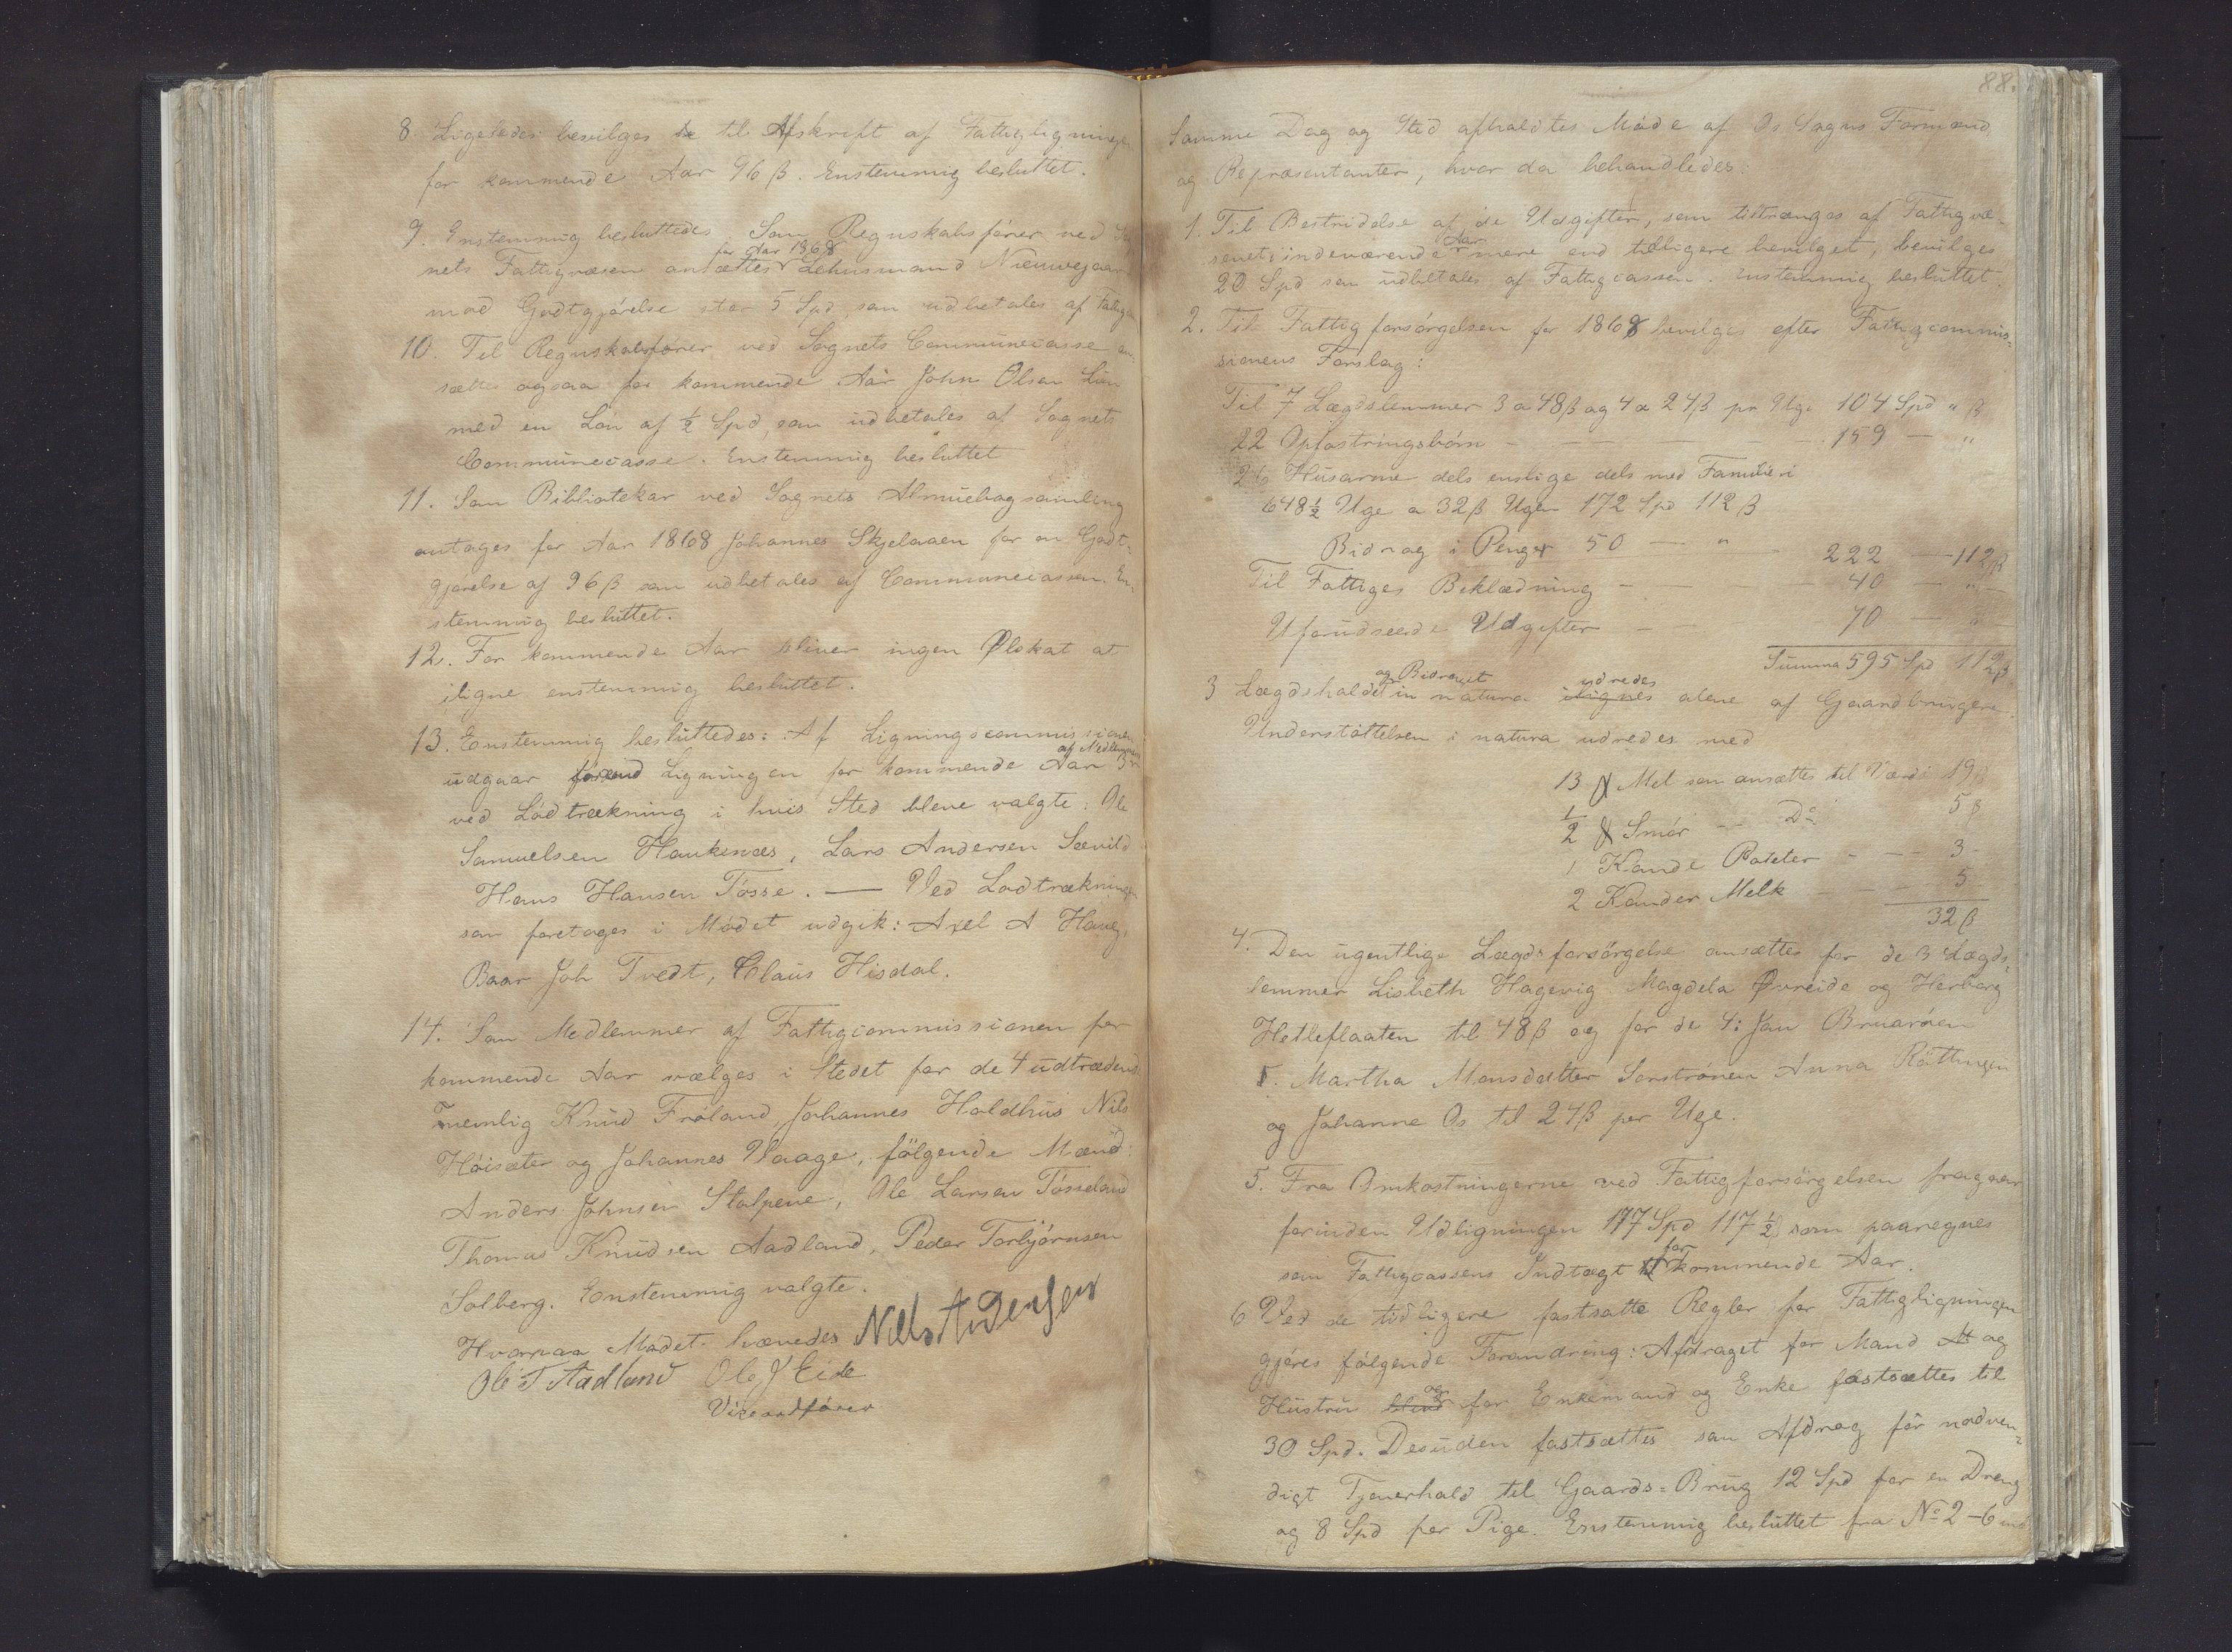 8. Ligeledes bevilges til Afskrift af Fattigligningen
for kommende Aar 96 β. Enstemmig besluttet.
9. Enstemmig besluttedes. Som Regnskabsfører ved Sog
for Aar 1868
nets Fattigvæsen ansættes Lehnsmand Nieuwejaar
mod Godtgjørelse stor 5 Spd, som udbetales af Fattigc
10. Til Regnskabsfører ved Sognets Communecasse an-
sættes ogsaa for kommende Aar John Olsen Lien
med en Løn af ½ Spd, som udbetales af Sognets
Communecasse. Enstemmig besluttet
11. Som Bibliotekar ved Sognets Almuebogsamling
antages for Aar 1868 Johannes Skjelaaen for en Godt-
gjørelse af 96 β som udbetales af Communecassen. En-
stemmig besluttet.
12. For kommende Aar bliver ingen Ølskat at
iligne enstemmig besluttet.
13. Enstemmig besluttedes: Af Ligningscommissionen
af Medlemmerne
udgaar førend Ligningen for kommende Aar 3
ved Lødtrækning i hvis Sted bleve valgte: Ole
Samuelsen Haukenæs, Lars Andersen Sævild
Hans Hansen Tøsse. — Ved Lodtrækningen
som foretages i Mødet udgik: Axel A Haug,
Baar Joh Tvedt, Claus Hisdal.
14. Som Medlemmer af Fattigcommissionen for
kommende Aar vælges i Stedet for de 4 udtrædend
nemlig Knud Frøland, Johannes Haldhus Nils
Høisæter og Johannes Vaage, følgende Mænd:
Anders Johnsen Stolpene, Ole Larsen Tøsseland
Thomas Knudsen Aadland, Peder Torbjørnsen
Solberg. Enstemmig valgte.
Hvorpaa Mødet hævedes Nils Andersen
Ole T Aadland Ole J Eide
Viceordfører
88.
Samme Dag og Sted afholdtes Møde af Os Sogns Formænd
og Repræsentanter, hvor da behandledes:
1. Til Bestridelse af de Udgifter, som tiltrænges af Fattigvæ-
Aar
senet i indeværende mere end tidligere bevilget, bevilges
20 Spd som udbetales af Fattigcassen. Enstemmig besluttet.
2. Til Fattigforsørgelsen for 1868 bevilges efter Fattigcommis-
sionens Forslag:
Til 7 Lægdslemmer 3 a 48 β og 4 a 24 β pr Uge 104 Spd " β
22 Opfostringsbørn — — 159 — "
26 Husarme dels enslige dels med Familie i
648½ Uge a 32 β Ugen 172 Spd 112 β
Bidrag i Penger 50 — " — 222 — 112 β
Til Fattiges Beklædning — — 40 — "
Uforudseede Udgifter — — 70 — "
Summa 595 Spd 112 β
og Bidraget udredes
3 Lægdsholdet in natura ilignes alene af Gaardbrugere.
Understøttelsen i natura udredes med
13 ℔ Mel som ansættes til Værdi 19 β
½ ℔ Smør — Do 5 β
1 Kande Poteter — — 3
2 Kander Melk — — 5
32 β
4. Den ugentlige Lægdsforsørgelse ansættes for de 3 Lægds-
lemmer Lisbeth Hagevig Magdela Øvreide og Herborg
Hetleflaaten til 48 β og for de 4: Jan Bruarøen
Martha Monsdatter Sørstrønen Anna Røttingen
og Johanne Os til 24 β per Uge.
5. Fra Omkostningerne ved Fattigforsørgelsen fragaar
forinden Udligningen 177 Spd 117½ som paaregnes
for
som Fattigcassens Indtægt kommende Aar.
6 Ved de tidligere fastsatte Regler for Fattigligningen
gjøres følgende Forandring: Afdraget for Mand og
og
Hustru bliver for Enkemand og Enke fastsættes til
30 Spd. Desuden fastsættes som Afdrag för nødven-
digt Tjenerhold til Gaards-Brug 12 Spd for en Dreng
og 8 Spd per Pige. Enstemmig besluttet fra No 2-6 incl